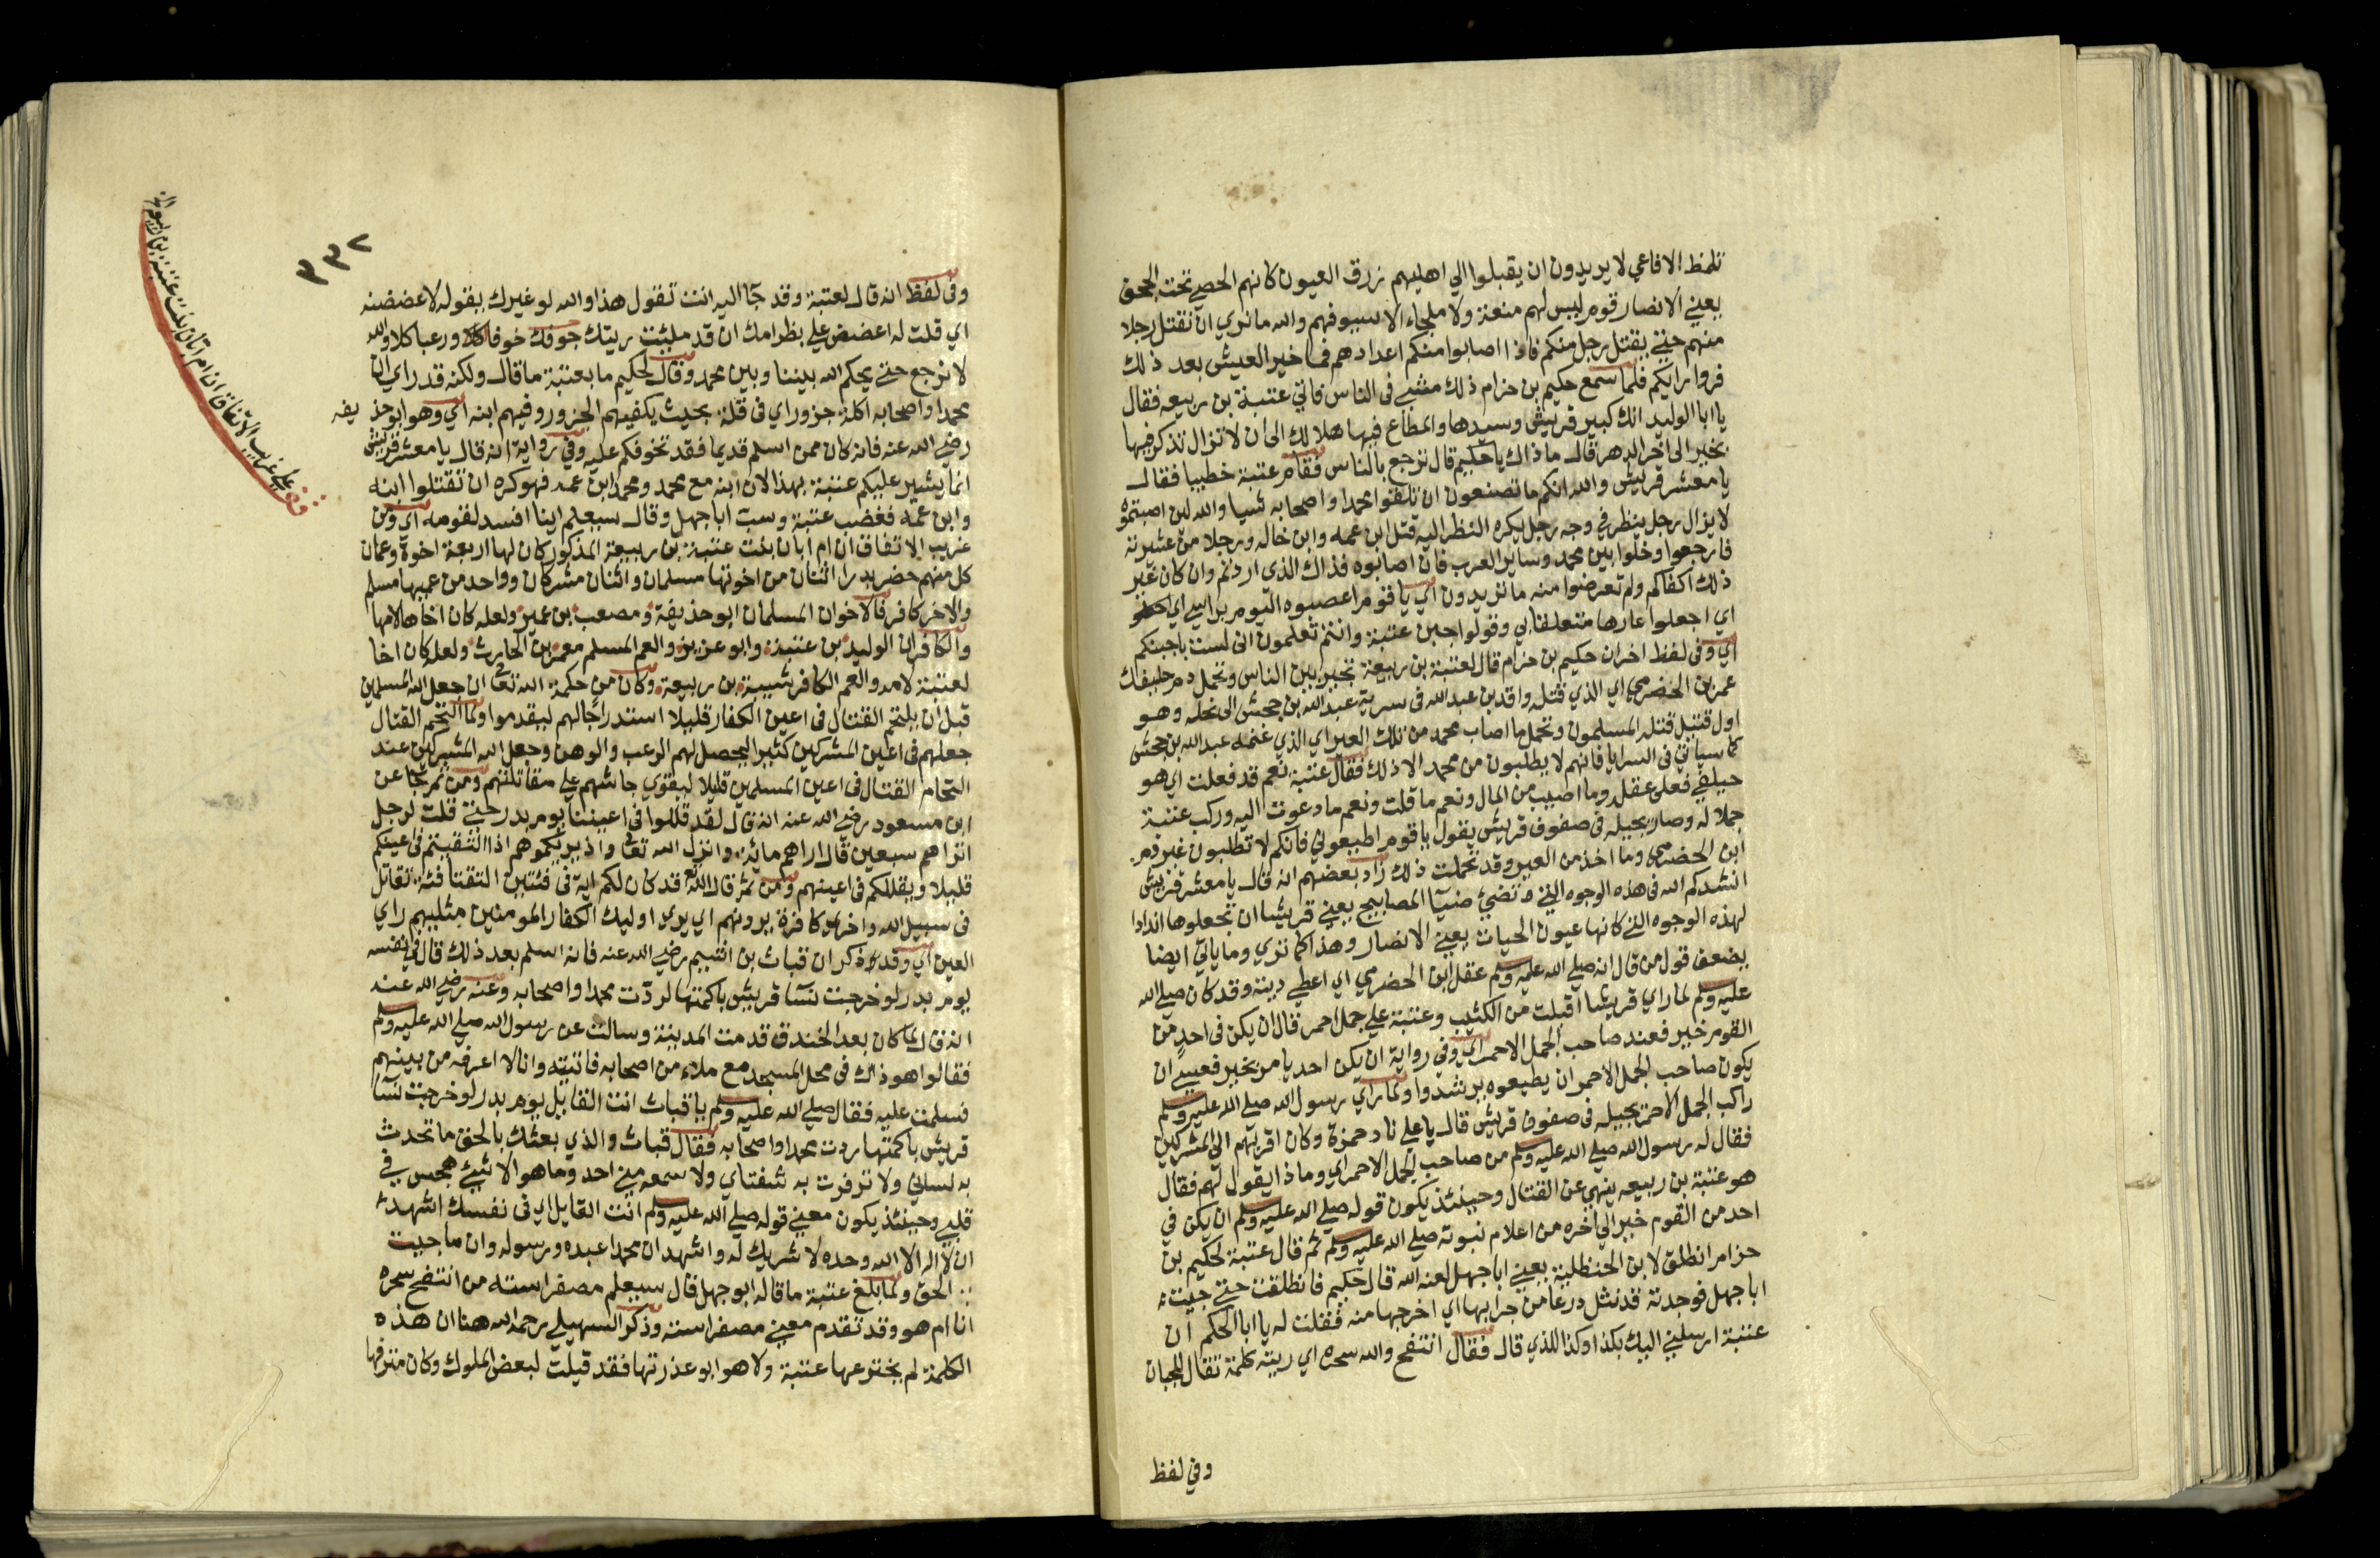 تلمظ الافاعي لا يريدون ان يقبلوا الي اهليهم زرق العيون كانهم الحصي تحت الحجف
يعني الانصار قوم ليس لهم منعة ولا ملجاء الا سيوفهم والله ما نري ان نقتل رجلا
منهم حتي يقتل رجل منكم فاذا اصابوا منكم اعدادهم فما خير العيش بعد ذلك
فروا رايكم فلما سمع حكيم بن حزام ذلك مشي في الناس فاتي عتبة بن ربيعه فقال
يا ابا الوليد انك كبير قريش وسيدها والمطاع فيها هلا لك الى ان لا تزال تذكر فيها
بخير الى اخر الدهر قال ما ذاك يا حكيم قال ترجع بالناس فقام عتبة خطيبا فقال
يا معشر قريش والله انكم ما تصنعون ان تلقوا محمدا واصحابه شيا والله لين اصبتموه
لا يزال رجل ينظر في وجه رجل يكره النظر اليه قتل ابن عمه وابن خاله ورجلا من عشيرته
فارجعوا وخلوا بين محمد وساير العرب فان اصابوه فذاك الذي اردتم وان كان غير
ذلك اكفاكم ولم تعرضوا منه ما تريدون اي يا قوم اعصبوه اليوم براسي اي
اي اجعلوا عارها متعلقا بي وقولوا جبن عتبة وانتم تعلمون اني لست باجبنكم
اي وفى لفظ اخر ان حكيم بن حزام قال لعتبة بن ربيعة تجير بين الناس وتحمل دم حليفك
عمر بن الحضرمي اي الذي قتله واقد بن عبد الله في سرية عبد الله بن جحش الى نخله وهو
اول قتيل قتله المسلمون وتحمل ما اصاب محمد من تلك العير اي الذي غنمه عبد الله بن جحش
كما سياتي في السرايا فانهم لا يطلبون من محمد الا ذلك فقال عتبة نعم قد فعلت اي هو
حليفي فعلى عقله وما اصيب من المال ونعم ما قلت ونعم ما دعوت اليه وركب عتبة
جملا له وصار يجيله في صفوف قريش يقول يا قوم اطيعوني فانكم لا تطلبون غير دم
ابن الحضرمي وما اخذ من العير وقد تحملت ذلك زاد بعضهم انه قال يا معشر قريش
انشدكم الله في هذه الوجوه التي تضيء ضيا المصابيح يعني قريشا ان تجعلوها اندادا
لهذه الوجوه التي كانها عيون الحيات يعني الانصار وهذا كما تري وما ياتي ايضا
يضعف قول من قال انه صلي الله عليه وسلم عقل ابن الحضرمي اي اعطي ديته وقد كان صلي الله
عليه وسلم لما راي قريشا اقبلت من الكثيب وعتبة علي جمل احمر قال ان يكن في احد من
القوم خير فعند صاحب الجمل الاحمر اي وفي رواية ان يكن احد يامر بخير فعسي ان
يكون صاحب الجمل الاحمر ان يطيعوه يرشدوا ولما راي رسول الله صلي الله عليه وسلم
راكب الجمل الاحمر يجيله في صفوف قريش قال يا علي ناد حمزة وكان اقربهم الي المشركين
فقال له رسول الله صلي الله عليه وسلم من صاحب الجمل الاحمر اي وما ذا يقول لهم فقال
هو عتبة بن ربيعه ينهي عن القتال وحينئذ يكون قوله صلي الله عليه وسلم ان يكن في
احد من القوم خير الي اخره من اعلام نبوته صلي الله عليه وسلم ثم قال عتبة لحكيم بن
حزام انطلق لابن الحنظلية يعني ابا جهل لعنه الله قال حكيم فانطلقت حتي جيت
ابا جهل فوجدته قد نثل درعا من جرابها اي اخرجها منه فقلت له يا ابا الحكم ان
عتبة ارسلني اليك بكذا وكذا للذي قال فقال انتفخ والله سحره اي ريته كلمة تقال للجبان
وفي لفظ
٣٣٢
وفى لفظ انه قال لعتبة وقد جآ اليه انت تقول هذا والله لو غيرك يقوله لاعضضنه
اي قلت له اعضض علي بظر امك ان قد مليت ريتك جوفك خوفا ورعبا كلا والله
لا نرجع حتي يحكم الله بيننا وبين محمد وقال لحكيم ما بعتبة ما قال ولكنه قد راي ان
محمدا واصحابه اكلة جزور اي في قلة بحيث يكفيهم الجزور وفيهم ابنه اي وهو ابو حذيفه
رضي الله عنه فانه كان ممن اسلم قديما فقد تخوفكم عليه وفي رواية انه قال يا معشر قريش
انما يشير عليكم عتبة بهذا لان ابنه مع محمد ومحمد ابن عمه فهو كره ان تقتلوا ابنه
وابن عمه فغضب عتبة وسب ابا جهل وقال سيعلم اينا افسد لقومه اي ومن
غريب الاتفاق ان ام ابان بنت عتبة بن ربيعة المذكور كان لها اربعة اخوة وعمان
كل منهم حضر بدرا اثنان من اخوتها مسلمان واثنان مشركان وواحد من عميها مسلم
والاخر كافر فالاخوان المسلمان ابو حذيفة ومصعب بن عمير ولعله كان اخاها لامها
والكافران الوليد بن عتبة وابو عزيز والعم المسلم معمر بن الحارث ولعله كان اخا
لعتبة لامه والعم الكافر شيبة بن ربيعة وكان من حكمة الله تعالى ان جعل الله المسلمين
قبل ان يلتحم القتال في اعين الكفار قليلا استدراجا لهم ليقدموا ولما التحم القتال
جعلهم في اعين المشركين كثيرا ليحصل لهم الرعب والوهن وجعل الله المشركين عند
التحام القتال في اعين المسلمين قليلا ليقوي جاشهم علي مقاتلتهم ومن ثم جا عن
ابن مسعود رضي الله عنه انه قال لقد قللوا في اعيننا يوم بدر حتي قلت لرجل
اتراهم سبعين قال اراهم ماية وانزل الله تعالى واذ يريكموهم اذ التقيتم في اعينكم
قليلا ويقللكم في اعينهم ومن ثم قال الله قد كان لكم اية في فئتين التقتا فئة تقاتل
في سبيل الله واخرى كافرة يرونهم اي يري اوليك الكفار المومنين مثليهم راي
العين اي وقد ذكر ان قباث بن اشيم رضي الله عنه فانه اسلم بعد ذلك قال في نفسه
يوم بدر لو خرجت نسآ قريش باكمتها لردت محمدا واصحابه وعنه رضي الله عنه
انه قال لما كان بعد الخندق قدمت المدينة وسالت عن رسول الله صلي الله عليه وسلم
فقالوا هو ذاك في محل المسجد مع ملاء من اصحابه فاتيته وانا لا اعرفه من بينهم
فسلمت عليه فقال صلي الله عليه وسلم يا قباث انت القايل يوم بدر لو خرجت نسآ
قريش باكمتها ردت محمدا واصحابه فقال قباث والذي بعثك بالحق ما تحدث
به لساني ولا ترفرفت به شفتاي ولا سمعه مني احد وما هو الا شيئ هجس في
قلبي وحينئذ يكون معني قوله صلي الله عليه وسلم انت القايل اي في نفسك اشهد
ان لا اله الا الله وحده لا شريك له واشهد ان محمدا عبده ورسوله وان ما جيت
الحق ولما بلغ عتبة ما قاله ابو جهل قال سيعلم مصفر استه من انتفخ سحره
انا ام هو وقد تقدم معني مصفر استه وذكر السهيلي رحمه الله هنا ان هذه
الكلمة لم يخترعها عتبة ولا هو ابو عذرتها فقد قيلت لبعض الملوك وكان مترفها
علي غريب الاتفاق ان ام ابان بنت عتبة بن